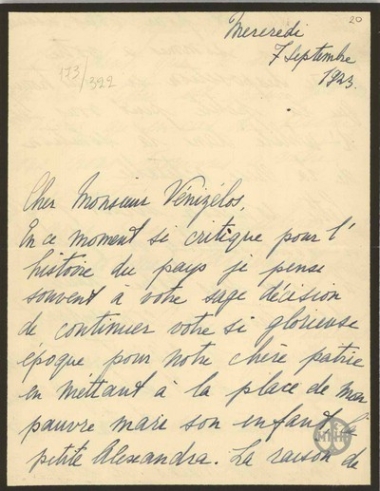 20
Mercredi
7 Septembre
1923.
173/392
Cher Monsieur Vénizélos,
En ce moment si critique pour l'
histoire du pays je pense
souvent à votre sage décision
de continuer votre si glorieuse
époque pour notre chère patrie
en mettant à la place de mon
pauvre mari son enfant
petite Alexandra. La raison de